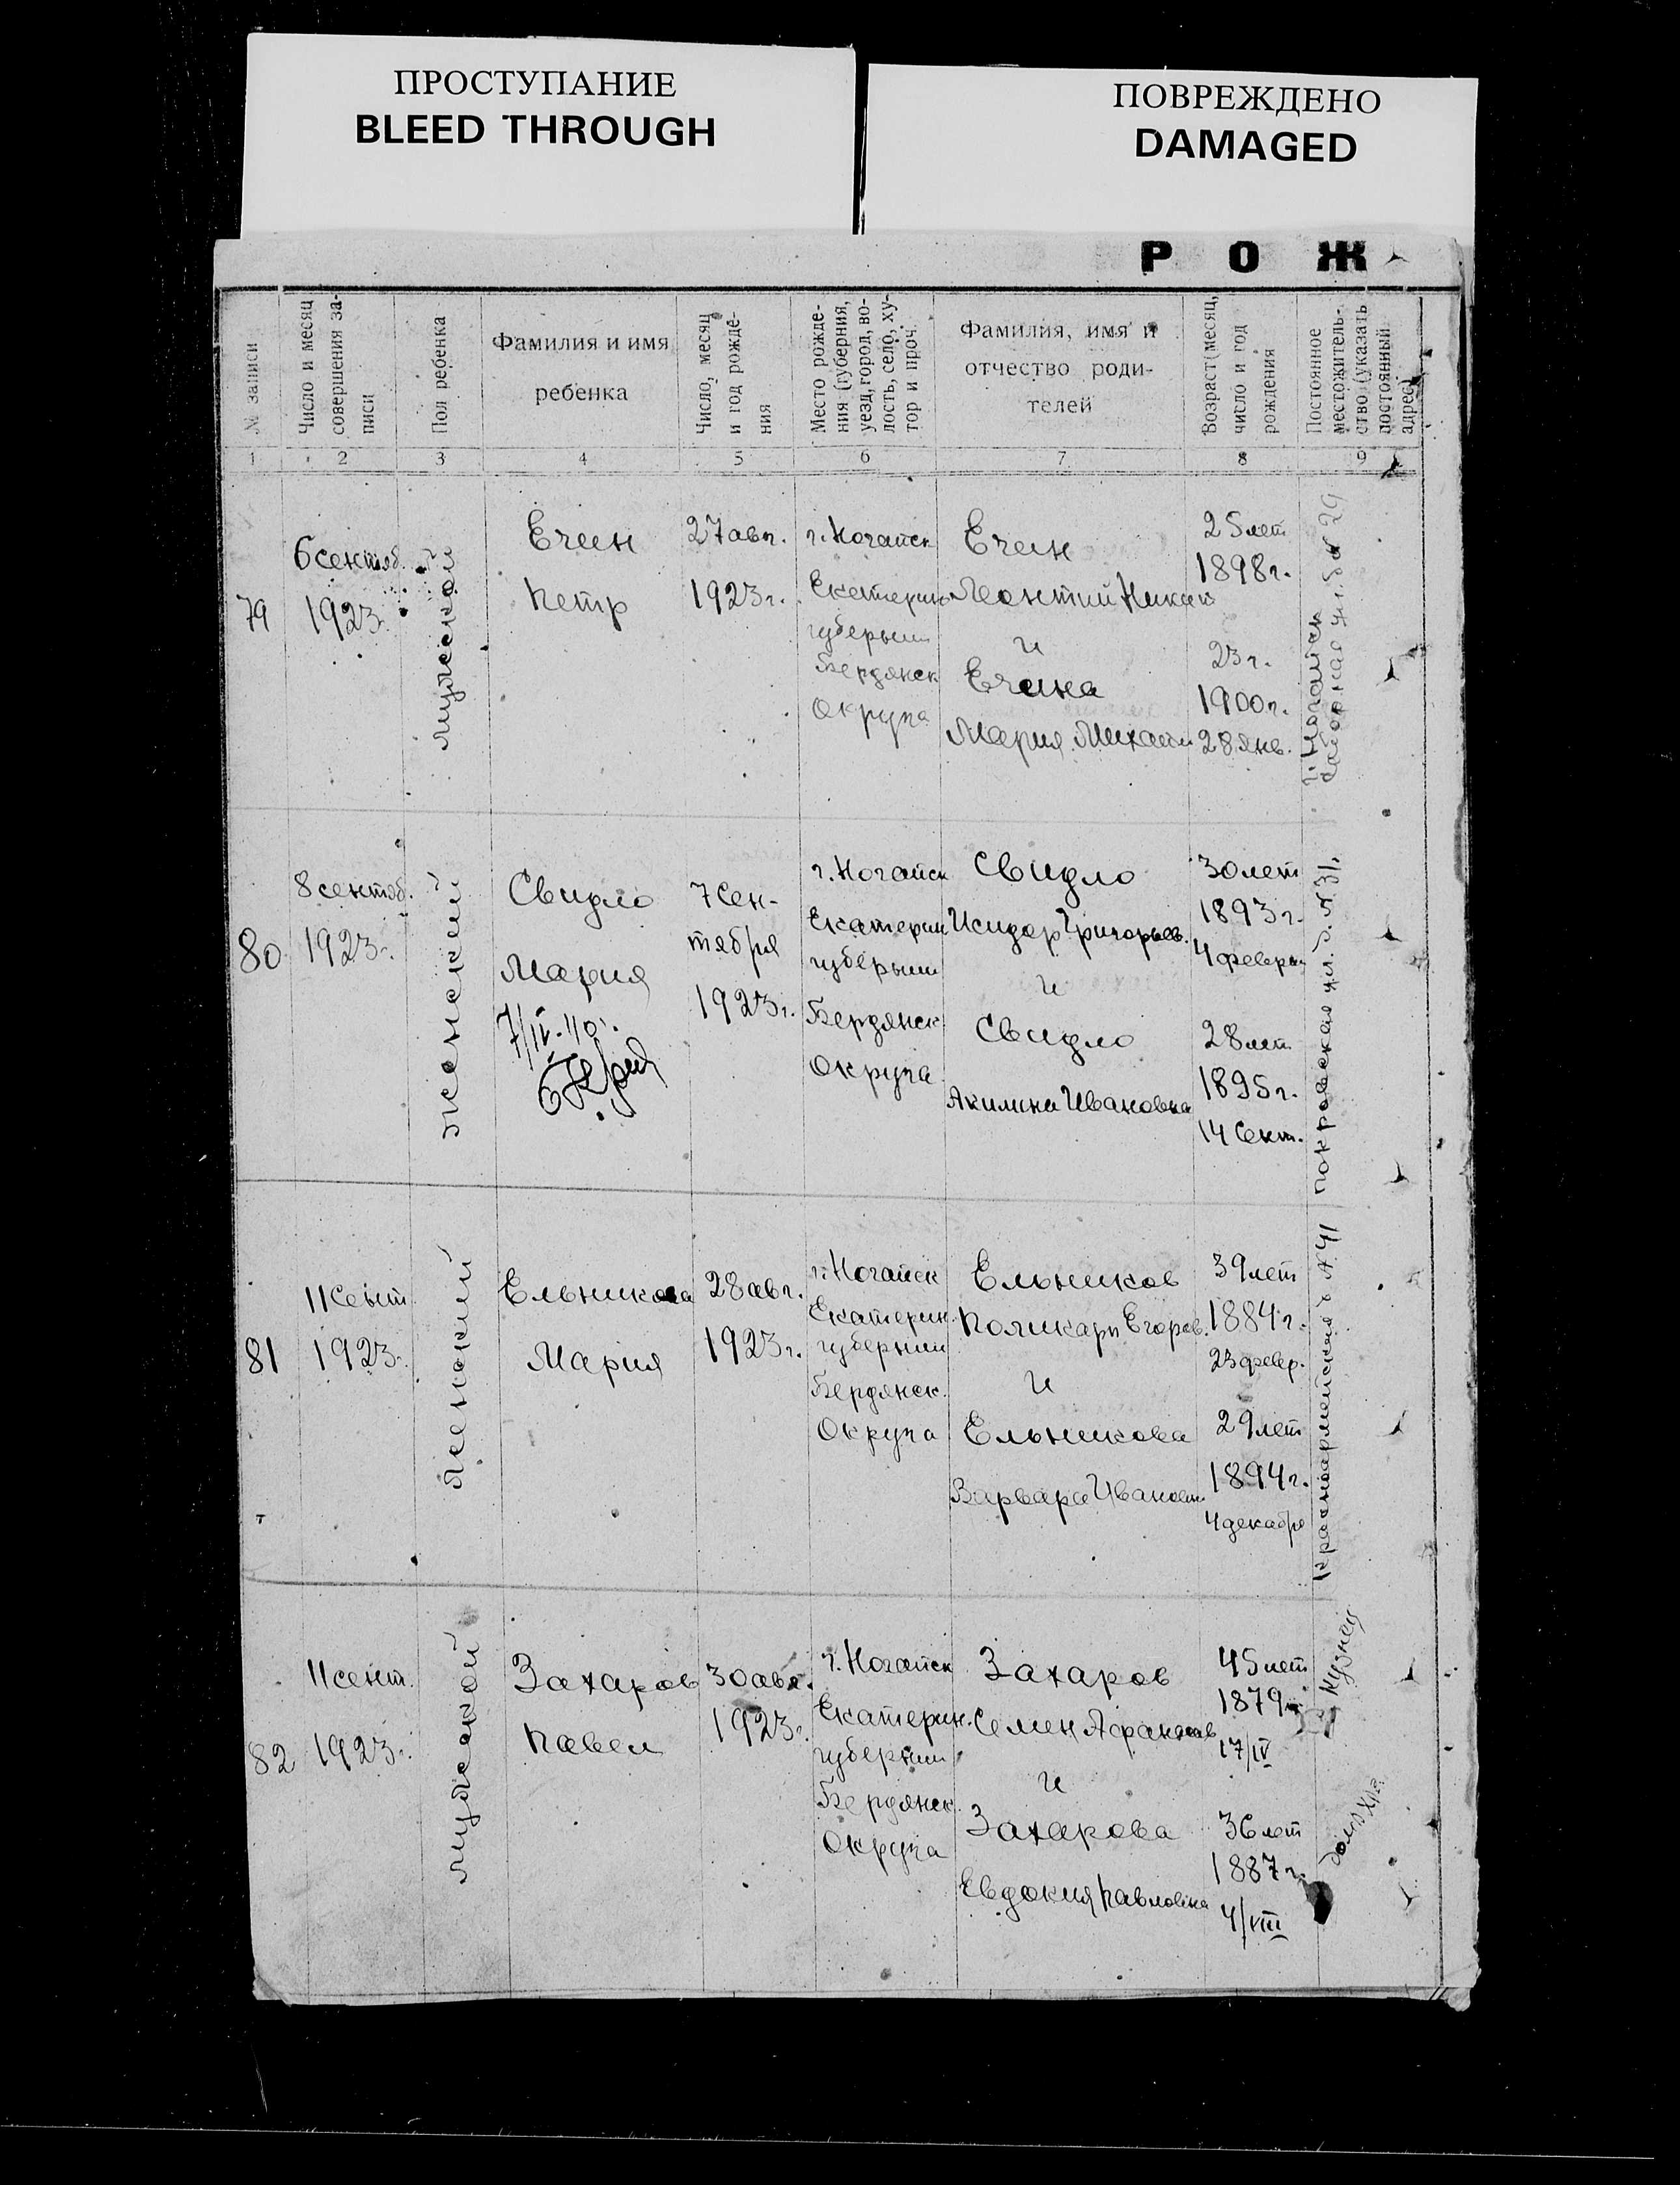 ПРОСТУПАНИЕ
BLEED THROUGH
ПОВРЕЖДЕНО
DAMAGED
Р О Ж
№ записи
Число и месяц
совершения за-
писи
Пол ребенка
Фамилия и имя
ребенка
Число, месяц
и год рожде-
ния
Место рожде-
ния (губерния,
уезд, город, во-
лость, село, ху-
тор и проч.
Фамилия, имя и
отчество роди-
телей
Возраст (месяц,
число и год
рождения
Постоянное
местожитель-
ство (указать
постоянный
адрес)
1 2 3 4 5 6 7 8 9
79
6 сентяб.
1923
мужской
Ечин
Петр
27 авг.
1923 г.
г. Ногайск
Екатерин
губернии
Бердянск
Округа
Ечин
Леонтий
и
Ечина
Мария Михаил
25 лет
1898 г.
23 г.
1900 г.
28 янв.
г. Ногайск
80
8 сентяб.
1923 г.
женский
Свидло
Мария
7/IV-40 г.
7 Сен-
тября
1923 г.
г. Ногайск
Екатерин
губернии
Бердянск
Округа
Свидло
Исидор Григорьев.
и
Свидло
Акилина Ивановна
30 лет
1893 г.
4 феврал
28 лет
1895 г.
14 Сент.
покровская ул. д. № 31.
81
11 Сент
1923 г.
женский
Ельникова
Мария
28 авг.
1923 г.
г. Ногайск
Екатерин.
губернии
Бердянск.
Округа
Ельников
Поликарп Егоров.
и
Ельникова
Варвара Ивановн
39 лет
1884 г.
23 февр.
29 лет
1894 г.
4 декабря
Красноармейская № 41
82
11 сент.
1923 г.
мужской
Захаров
Павел
30 авг.
1923 г.
г. Ногайск
Екатерин.
губернии
Бердянск.
Округа
Захаров
Семен Афанасьев
и
Захарова
Евдокия Павловна
45 лет
1879
17/IV
36 лет
1887 г.
4/VIII
кузнец